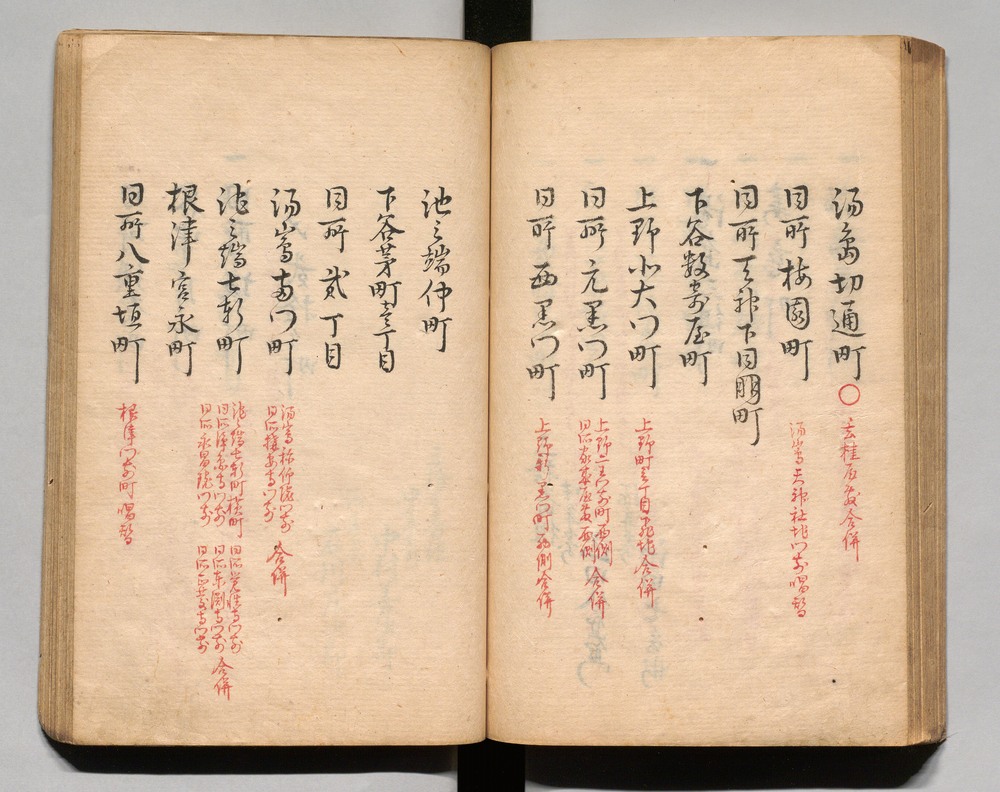 湯島切通町〇
玄桂屋敷合併
同所梅園町
湯嶌天神社地門前唱替
同所天神下同朋町
下谷数寄屋町
上野北大門町
上野町壱丁目 合併
同所元黒門町
上野二王門前町西側
同所家来屋敷西側 合併
同所西黒門町
上野新黒門町西側合併
池之端仲町
下谷茅町壱丁目
同所貳丁目
湯嶌両門町
湯嶌称仰院門前
同所 門前 合併
池之端七軒町
池之端七軒町横町
同所 門前
同所永昌院門前
同所覚性寺門前
同所東渕寺門前
同所正慶寺門前 合併
根津宮永町
同所八重垣町
根津門前町唱替